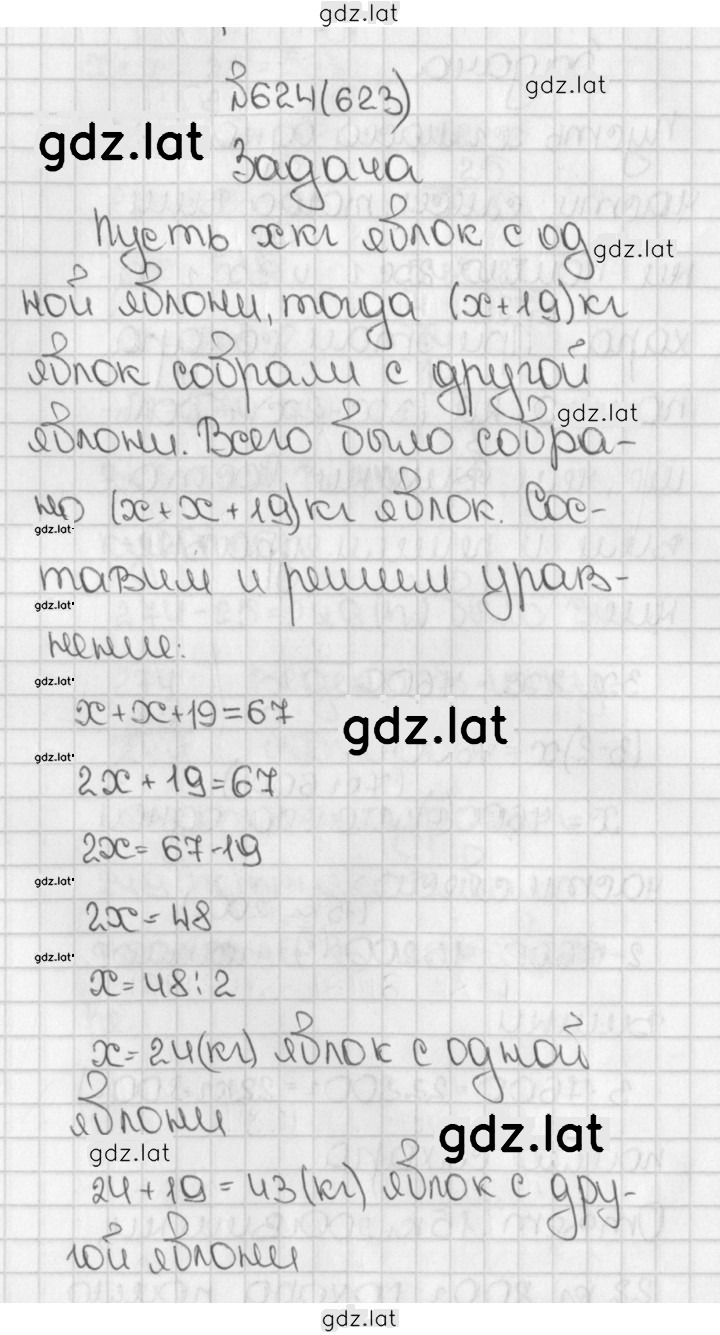 gdz.lat
№624(623)
gdz.lat
gdz.lat
Задача
Пусть x кг яблок с од
gdz.lat
ной яблони, тогда (x+19) кг
яблок собрали с другой
gdz.lat
яблони. Всего было собра-
но (x+x+19) кг яблок. Сос-
gdz.lat
тавим и решим урав-
gdz.lat
нение:
gdz.lat
x+x+19=67
gdz.lat
gdz.lat
2x+19=67
2x=67-19
gdz.lat
2x=48
gdz.lat
x=48:2
x=24(кг) яблок с одной
яблони
gdz.lat
gdz.lat
24+19=43(кг) яблок с дру-
гой яблони
gdz.lat